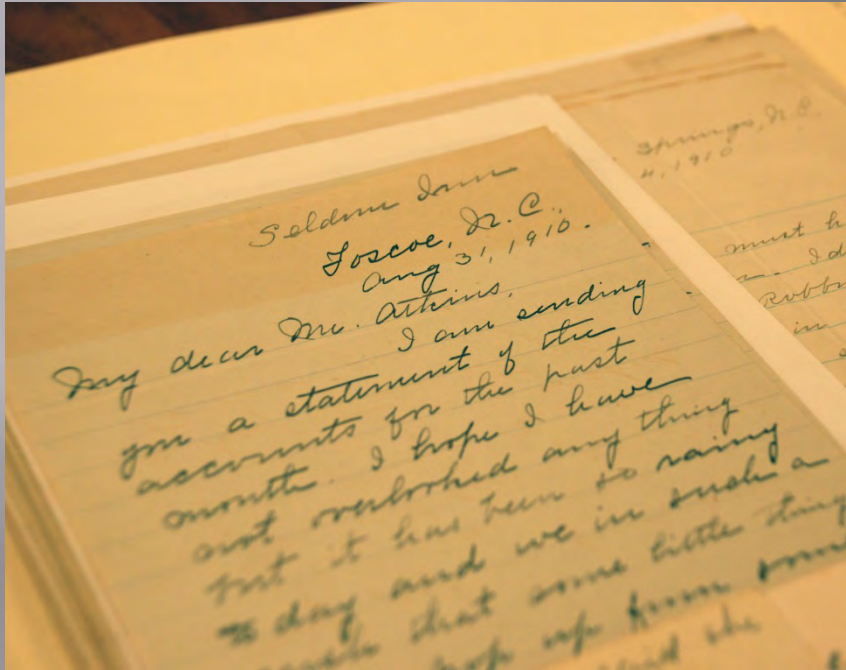 Seldom Inn
Foscoe, N.C.
Aug 31, 1910.
My dear Mr. Atkins,
I am sending
you a statement of the
accounts for the past
month. I hope I have
not overlooked any thing
but it has been so rainy
to day and we in such a
that some little thing
up from some
said she
Springs, N.C.
4, 1910
must h
. I d
Robbi
in